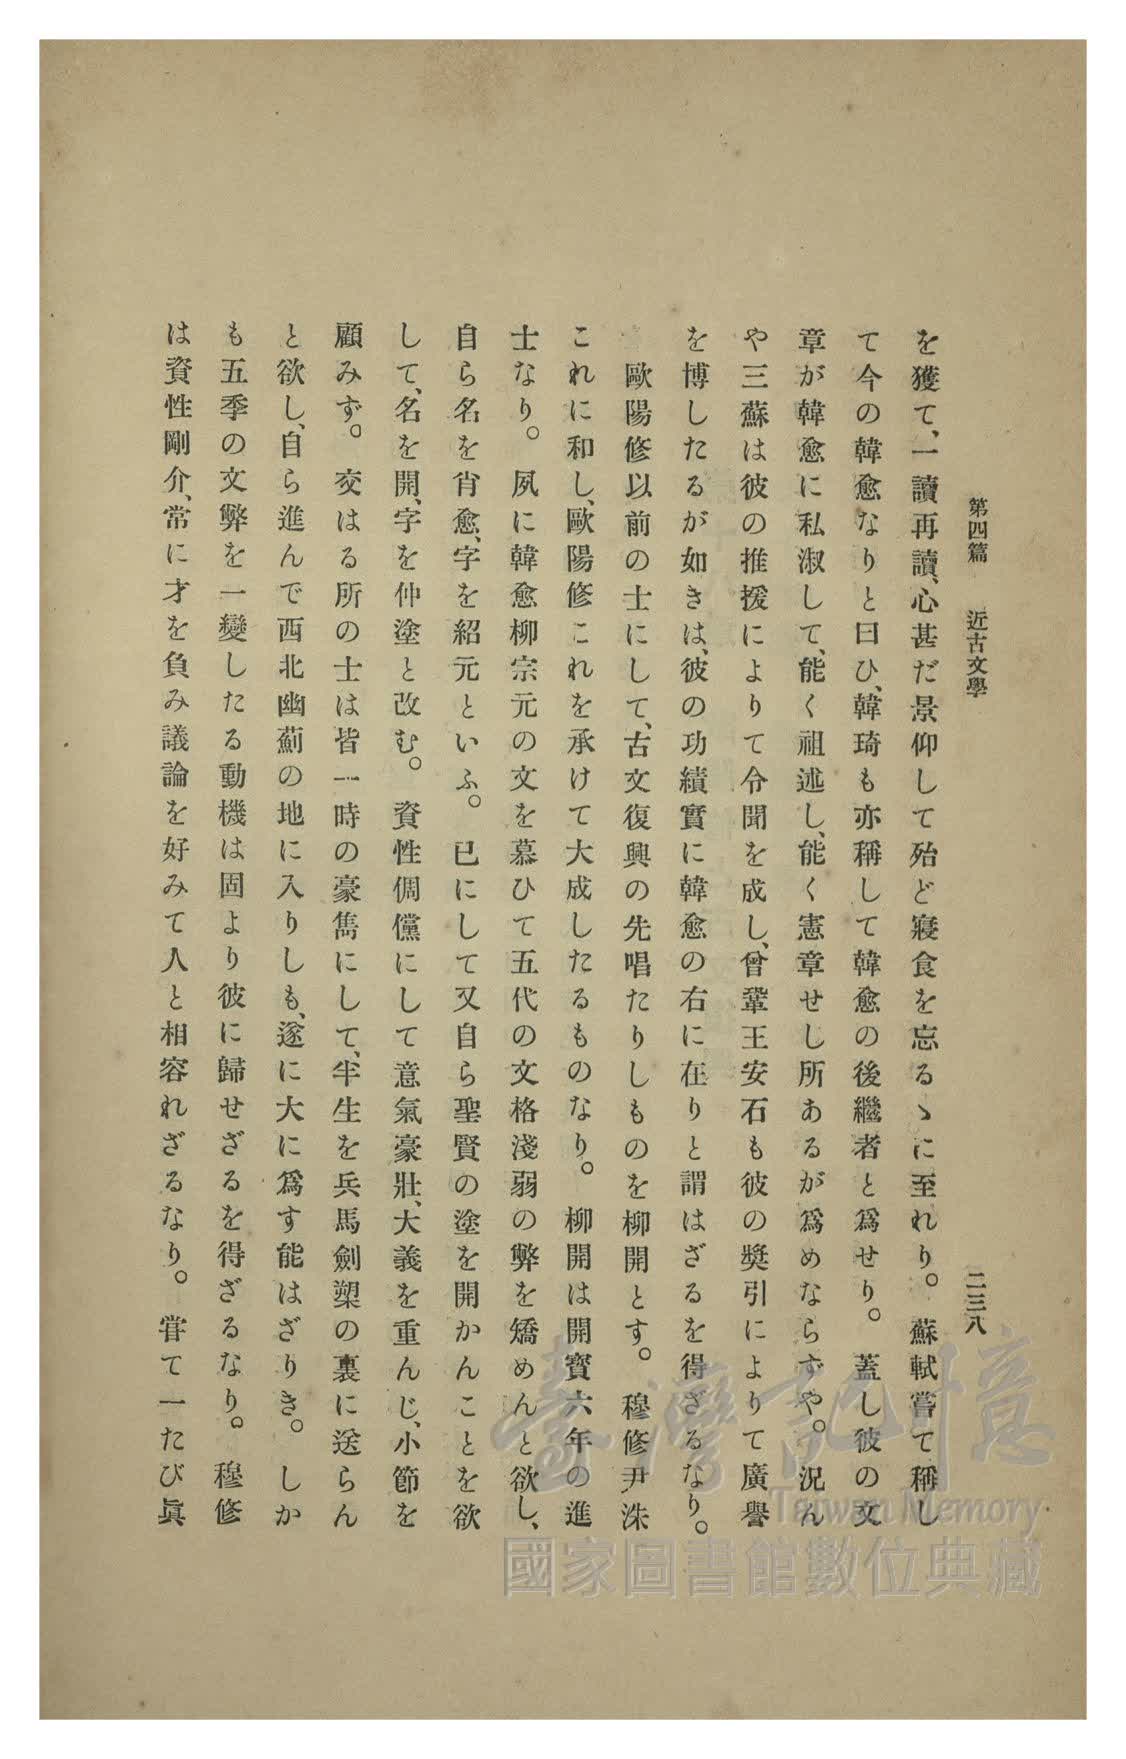 第四篇　近古文學　二三八
を獲て、一讀再讀、心甚だ景仰して殆ど寢食を忘るゝに至れり。蘇軾嘗て稱し
て今の韓愈なりと曰ひ、韓琦も亦稱して韓愈の後繼者と爲せり。蓋し彼の文
章が韓愈に私淑して、能く祖述し、能く憲章せし所あるが爲めならずや。況ん
や三蘇は彼の推援によりて令聞を成し、曾鞏王安石も彼の奬引によりて廣譽
を博したるが如きは、彼の功績實に韓愈の右に在りと謂はざるを得ざるなり。
歐陽修以前の士にして、古文復興の先唱たりしものを柳開とす。穆修尹洙
これに和し、歐陽修これを承けて大成したるものなり。柳開は開寶六年の進
士なり。夙に韓愈柳宗元の文を慕ひて五代の文格淺弱の弊を矯めんと欲し、
自ら名を肖愈、字を紹元といふ。已にして又自ら聖賢の塗を開かんことを欲
して、名を開、字を仲塗と改む。資性倜儻にして意氣豪壯、大義を重んじ、小節を
顧みず。交はる所の士は皆一時の豪雋にして、半生を兵馬劍槊の裏に送らん
と欲し、自ら進んで西北幽薊の地に入りしも、遂に大に爲す能はざりき。しか
も五季の文弊を一變したる動機は固より彼に歸せざるを得ざるなり。穆修
は資性剛介、常に才を負み議論を好みて人と相容れざるなり。甞て一たび眞
臺灣記憶
Taiwan Memory
國家圖書館數位典藏